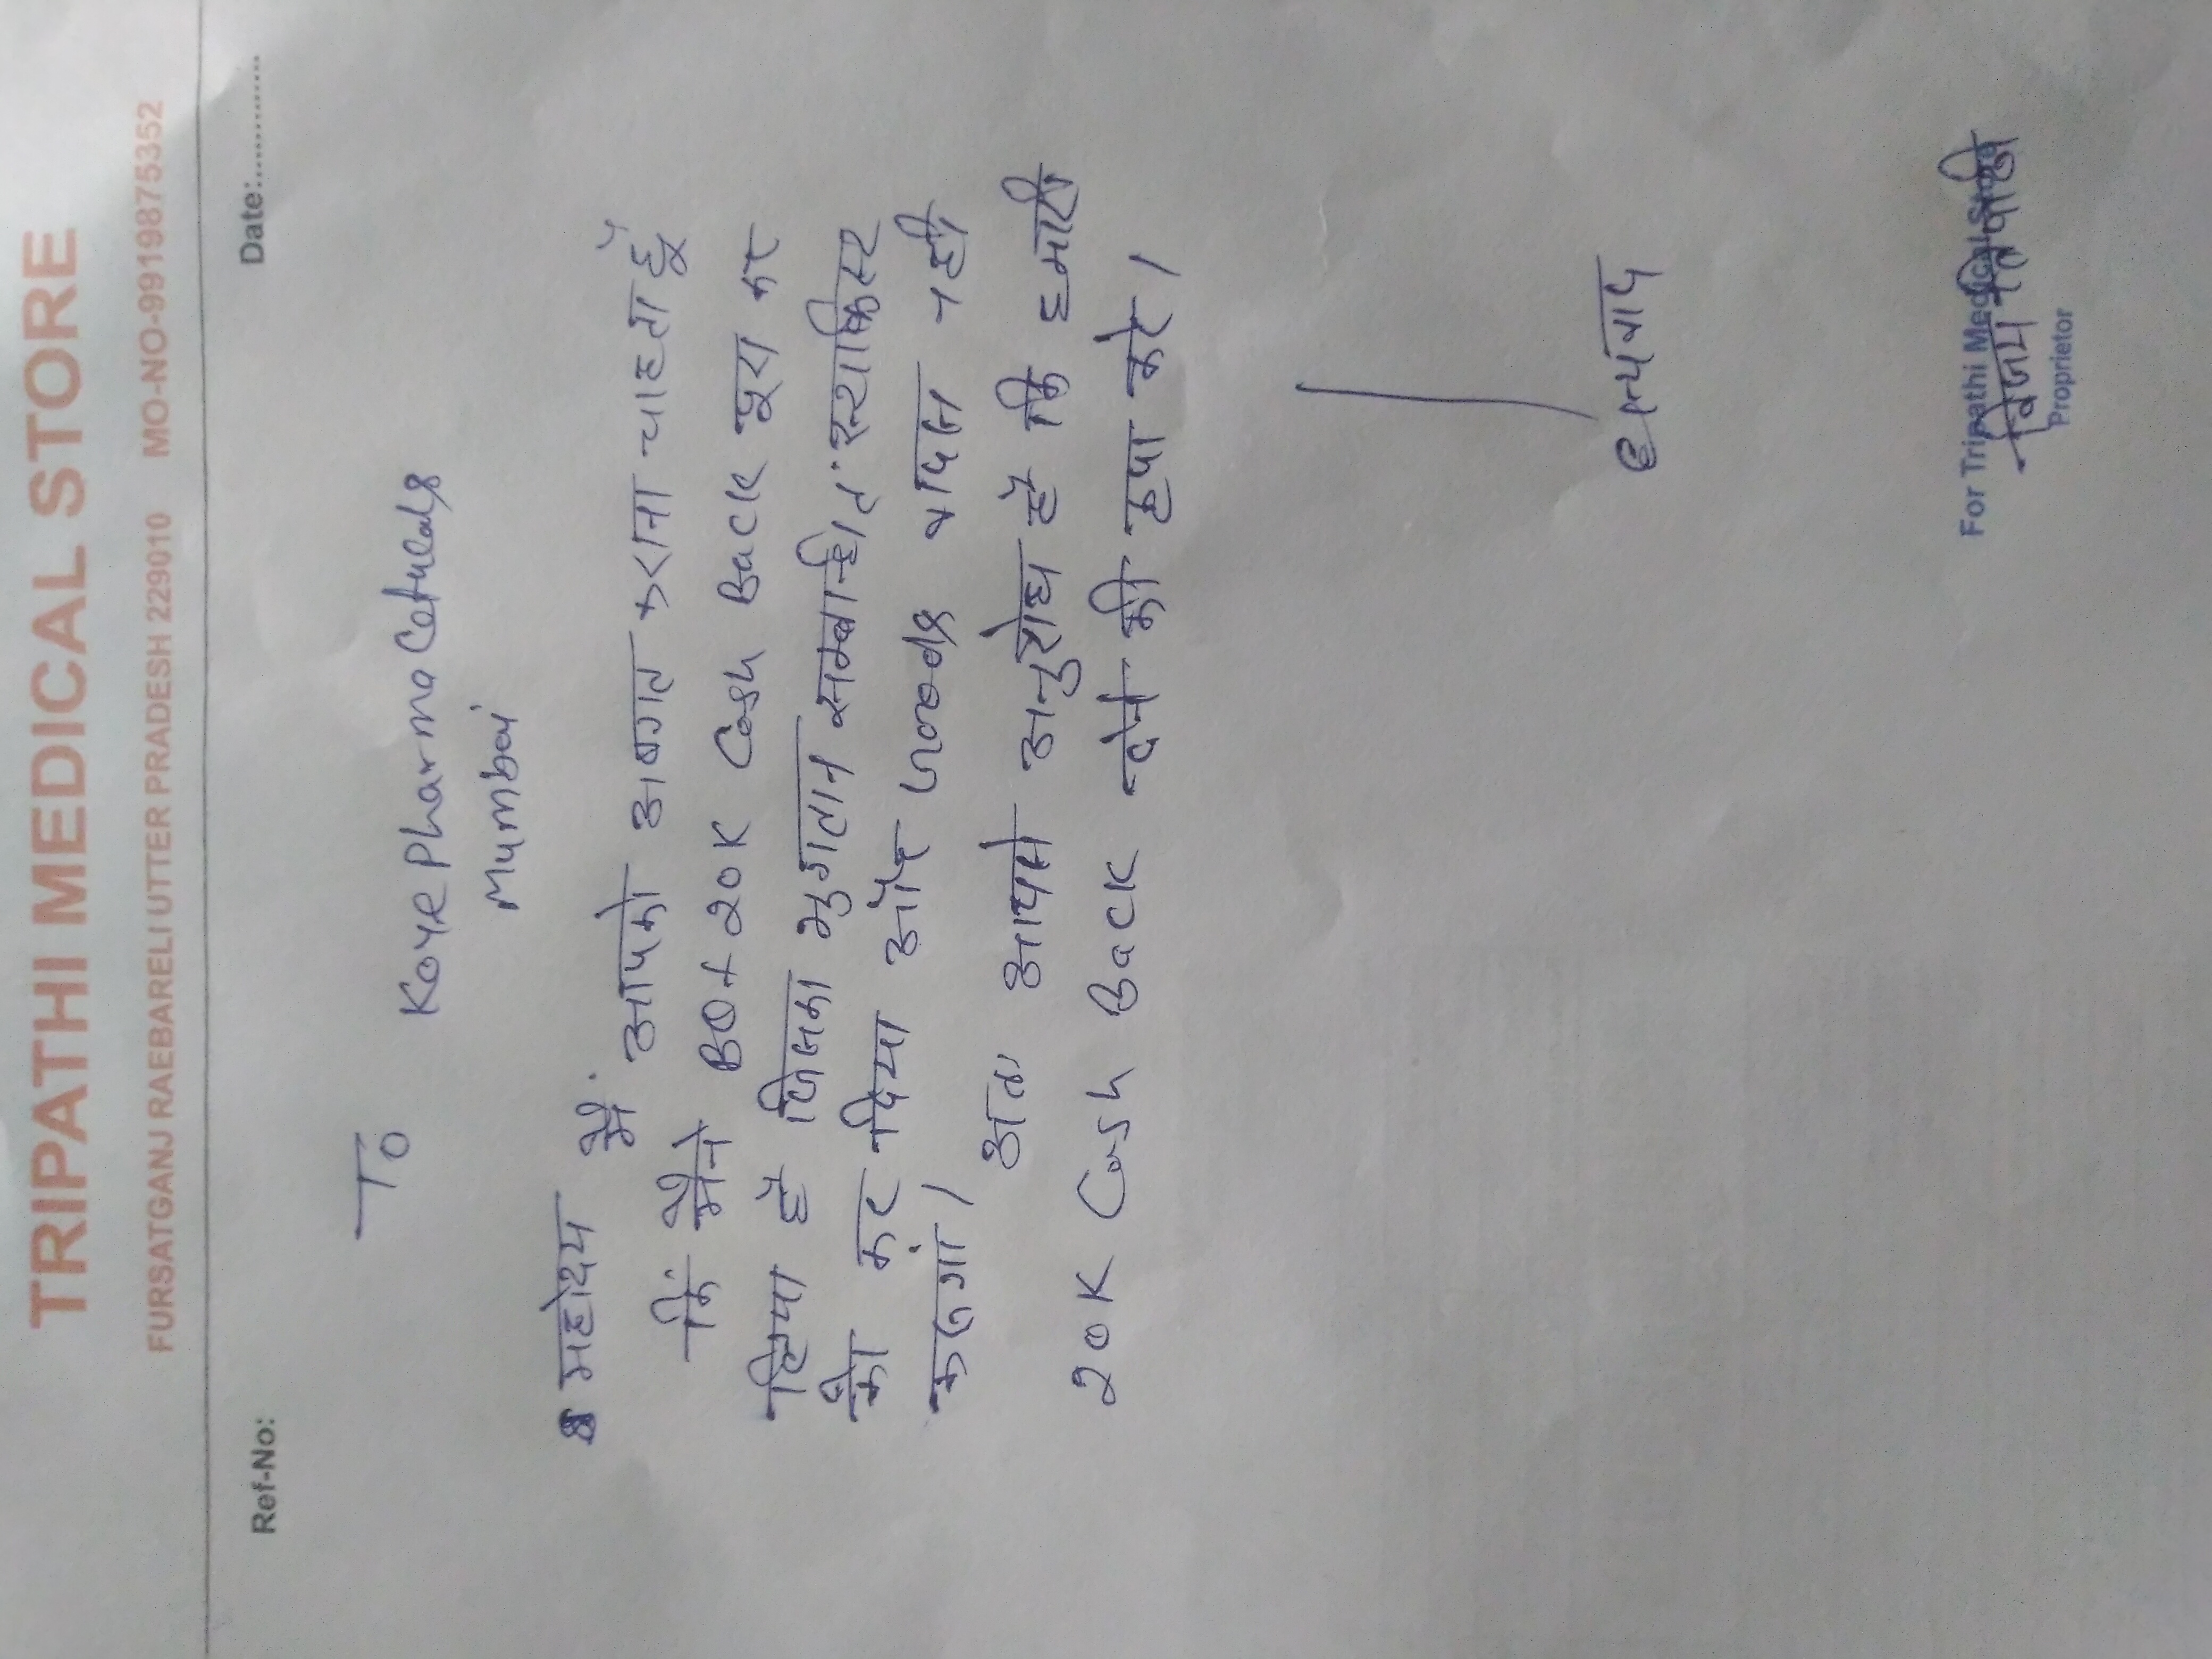 TRIPATHI MEDICAL STORE
FURSATGANJ RAEBARELI UTTER PRADESH 229010 MO-NO-9919875352
Ref-No: Date:............
To
Koye Pharma Ceticals
Mumbai
महोदय मै.
आपको अवगत कराना चाहता हूँ
कि मैने BOX 20K Cash Back पूरा कर
लिया है जिसका भुगतान सम्बान्धित स्टाकिस्ट
को कर दिया और Goods वापस नही
करूगां।
अतः आपसे अनुरोध है कि हमारी
20K Cash Back देने की कृपा करे।
धन्यवाद
For Tripathi Medical Store
Proprietor